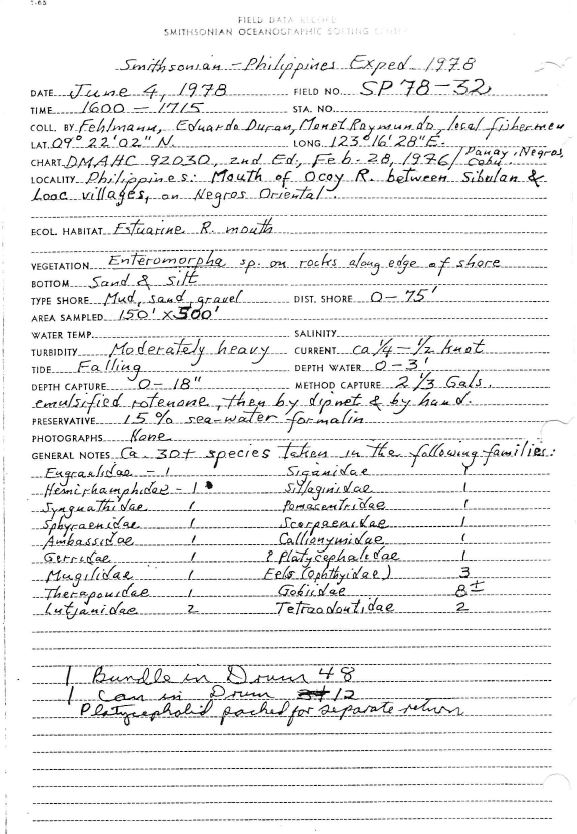 1-63
FIELD DATA RECORD
SMITHSONIAN OCEANOGRAPHIC SORTING CENTER
Smithsonian - Philippines Exped 1978
DATE June 4, 1978 FIELD NO. SP78-32
TIME 1600 - 1715 STA. NO.
COLL. BY Fehlmann, Eduardo Duran, Monet Raymundo, local fishermen
LAT. 09° 22' 02" N. LONG. 123° 16' 28" E.
CHART DMAHC 92030, 2nd Ed., Feb-28, 1976 / Panay, Negros, Cebu
LOCALITY Philippines: Mouth of Ocoy R. between Sibulan &
Looc villages, on Negros Oriental.
ECOL. HABITAT Estuarine R. mouth
VEGETATION Enteromorpha sp. on rocks along edge of shore
BOTTOM Sand & silt
TYPE SHORE Mud, sand, gravel DIST. SHORE 0-75'
AREA SAMPLED 150' X 500'
WATER TEMP. SALINITY
TURBIDITY Moderately heavy CURRENT ca 1/4 - 1/2 knot
TIDE Falling DEPTH WATER 0-3'
DEPTH CAPTURE 0-18" METHOD CAPTURE 2 1/3 Gals.
emulsified rotenone, then by dipnet & by hand.
PRESERVATIVE 15% sea-water formalin
PHOTOGRAPHS None
GENERAL NOTES Ca. 30+ species taken in the following families:
Engraulidae - 1 Siganidae 1
Hemirhamphidae - 1 Sillaginidae 1
Syngnathidae 1 Pomacentridae 1
Sphyraenidae 1 Scorpaenidae 1
Ambassidae 1 Callionymidae 1
Gerridae 1 ? Platycephalidae 1
Mugilidae 1 Eels (Ophthyidae) 3
Theraponidae 1 Gobiidae 8±
Lutjanidae 2 Tetraodontidae 2
1 Bundle in Drum 48
1 Can in Drum 12
Platycephalid packed for separate return